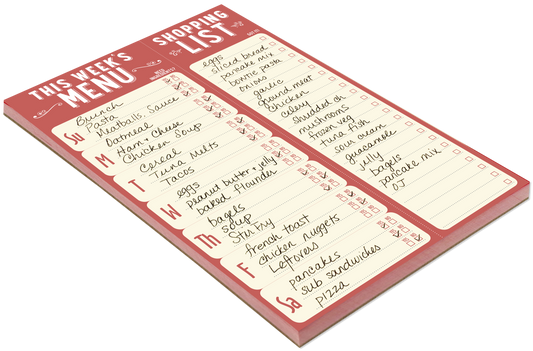 THIS WEEK'S
MENU
Su
Brunch
Pasta
Meatballs, Sauce
M
Oatmeal
Ham & Cheese
Chicken Soup
T
Cereal
Tuna Melts
Tacos
W
eggs
Peanut butter & jelly
baked flounder
Th
bagels
soup
Stir fry
F
french toast
Chicken nuggets
Leftovers
Sa
pancakes
sub sandwiches
pizza
SHOPPING
LIST
GOT IT!
eggs
sliced bread
pancake mix
bowtie pasta
onions
garlic
ground meat
Chicken
Celery
shredded ch
mushrooms
frozen veg
tuna fish
sour cream
guacamole
jelly
bagels
pancake mix
OJ